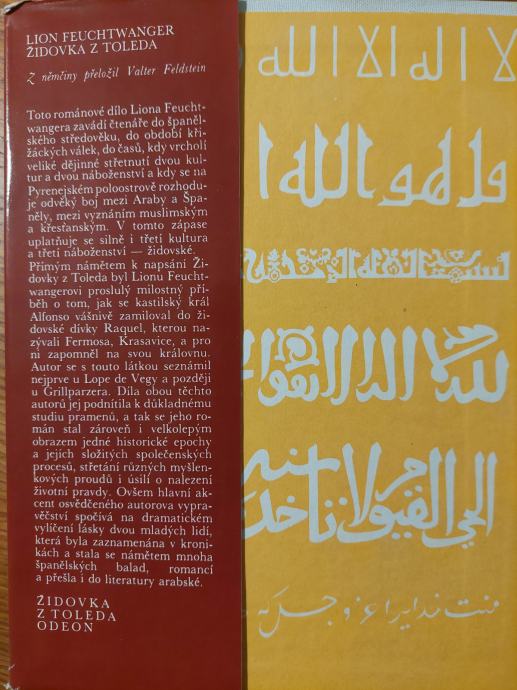 LION FEUCHTWANGER
ŽIDOVKA Z TOLEDA
Z němčiny přeložil Valter Feldstein
Toto románové dílo Liona Feucht-
wangera zavádí čtenáře do španěl-
ského středověku, do období kři-
žáckých válek, do časů, kdy vrcholí
veliké dějinné střetnutí dvou kul-
tur a dvou náboženství a kdy se na
Pyrenejském poloostrově rozhodu-
je odvěký boj mezi Araby a Špa-
něly, mezi vyznáním muslimským
a křesťanským. V tomto zápase
uplatňuje se silně i třetí kultura
a třetí náboženství — židovské.
Přímým námětem k napsání Ži-
dovky z Toleda byl Lionu Feucht-
wangerovi proslulý milostný pří-
běh o tom, jak se kastilský král
Alfonso vášnivě zamiloval do ži-
dovské dívky Raquel, kterou na-
zývali Fermosa, Krasavice, a pro
ni zapomněl na svou královnu.
Autor se s touto látkou seznámil
nejprve u Lope de Vegy a později
u Grillparzera. Díla obou těchto
autorů jej podnítila k důkladnému
studiu pramenů, a tak se jeho ro-
mán stal zároveň i velkolepým
obrazem jedné historické epochy
a jejích složitých společenských
procesů, střetání různých myšlen-
kových proudů i úsilí o nalezení
životní pravdy. Ovšem hlavní ak-
cent osvědčeného autorova vypra-
věčství spočívá na dramatickém
vylíčení lásky dvou mladých lidí,
která byla zaznamenána v kroni-
kách a stala se námětem mnoha
španělských balad, romancí
a přešla i do literatury arabské.
ŽIDOVKA
Z TOLEDA
ODEON
لا اله الا الله
قل هو الله ا